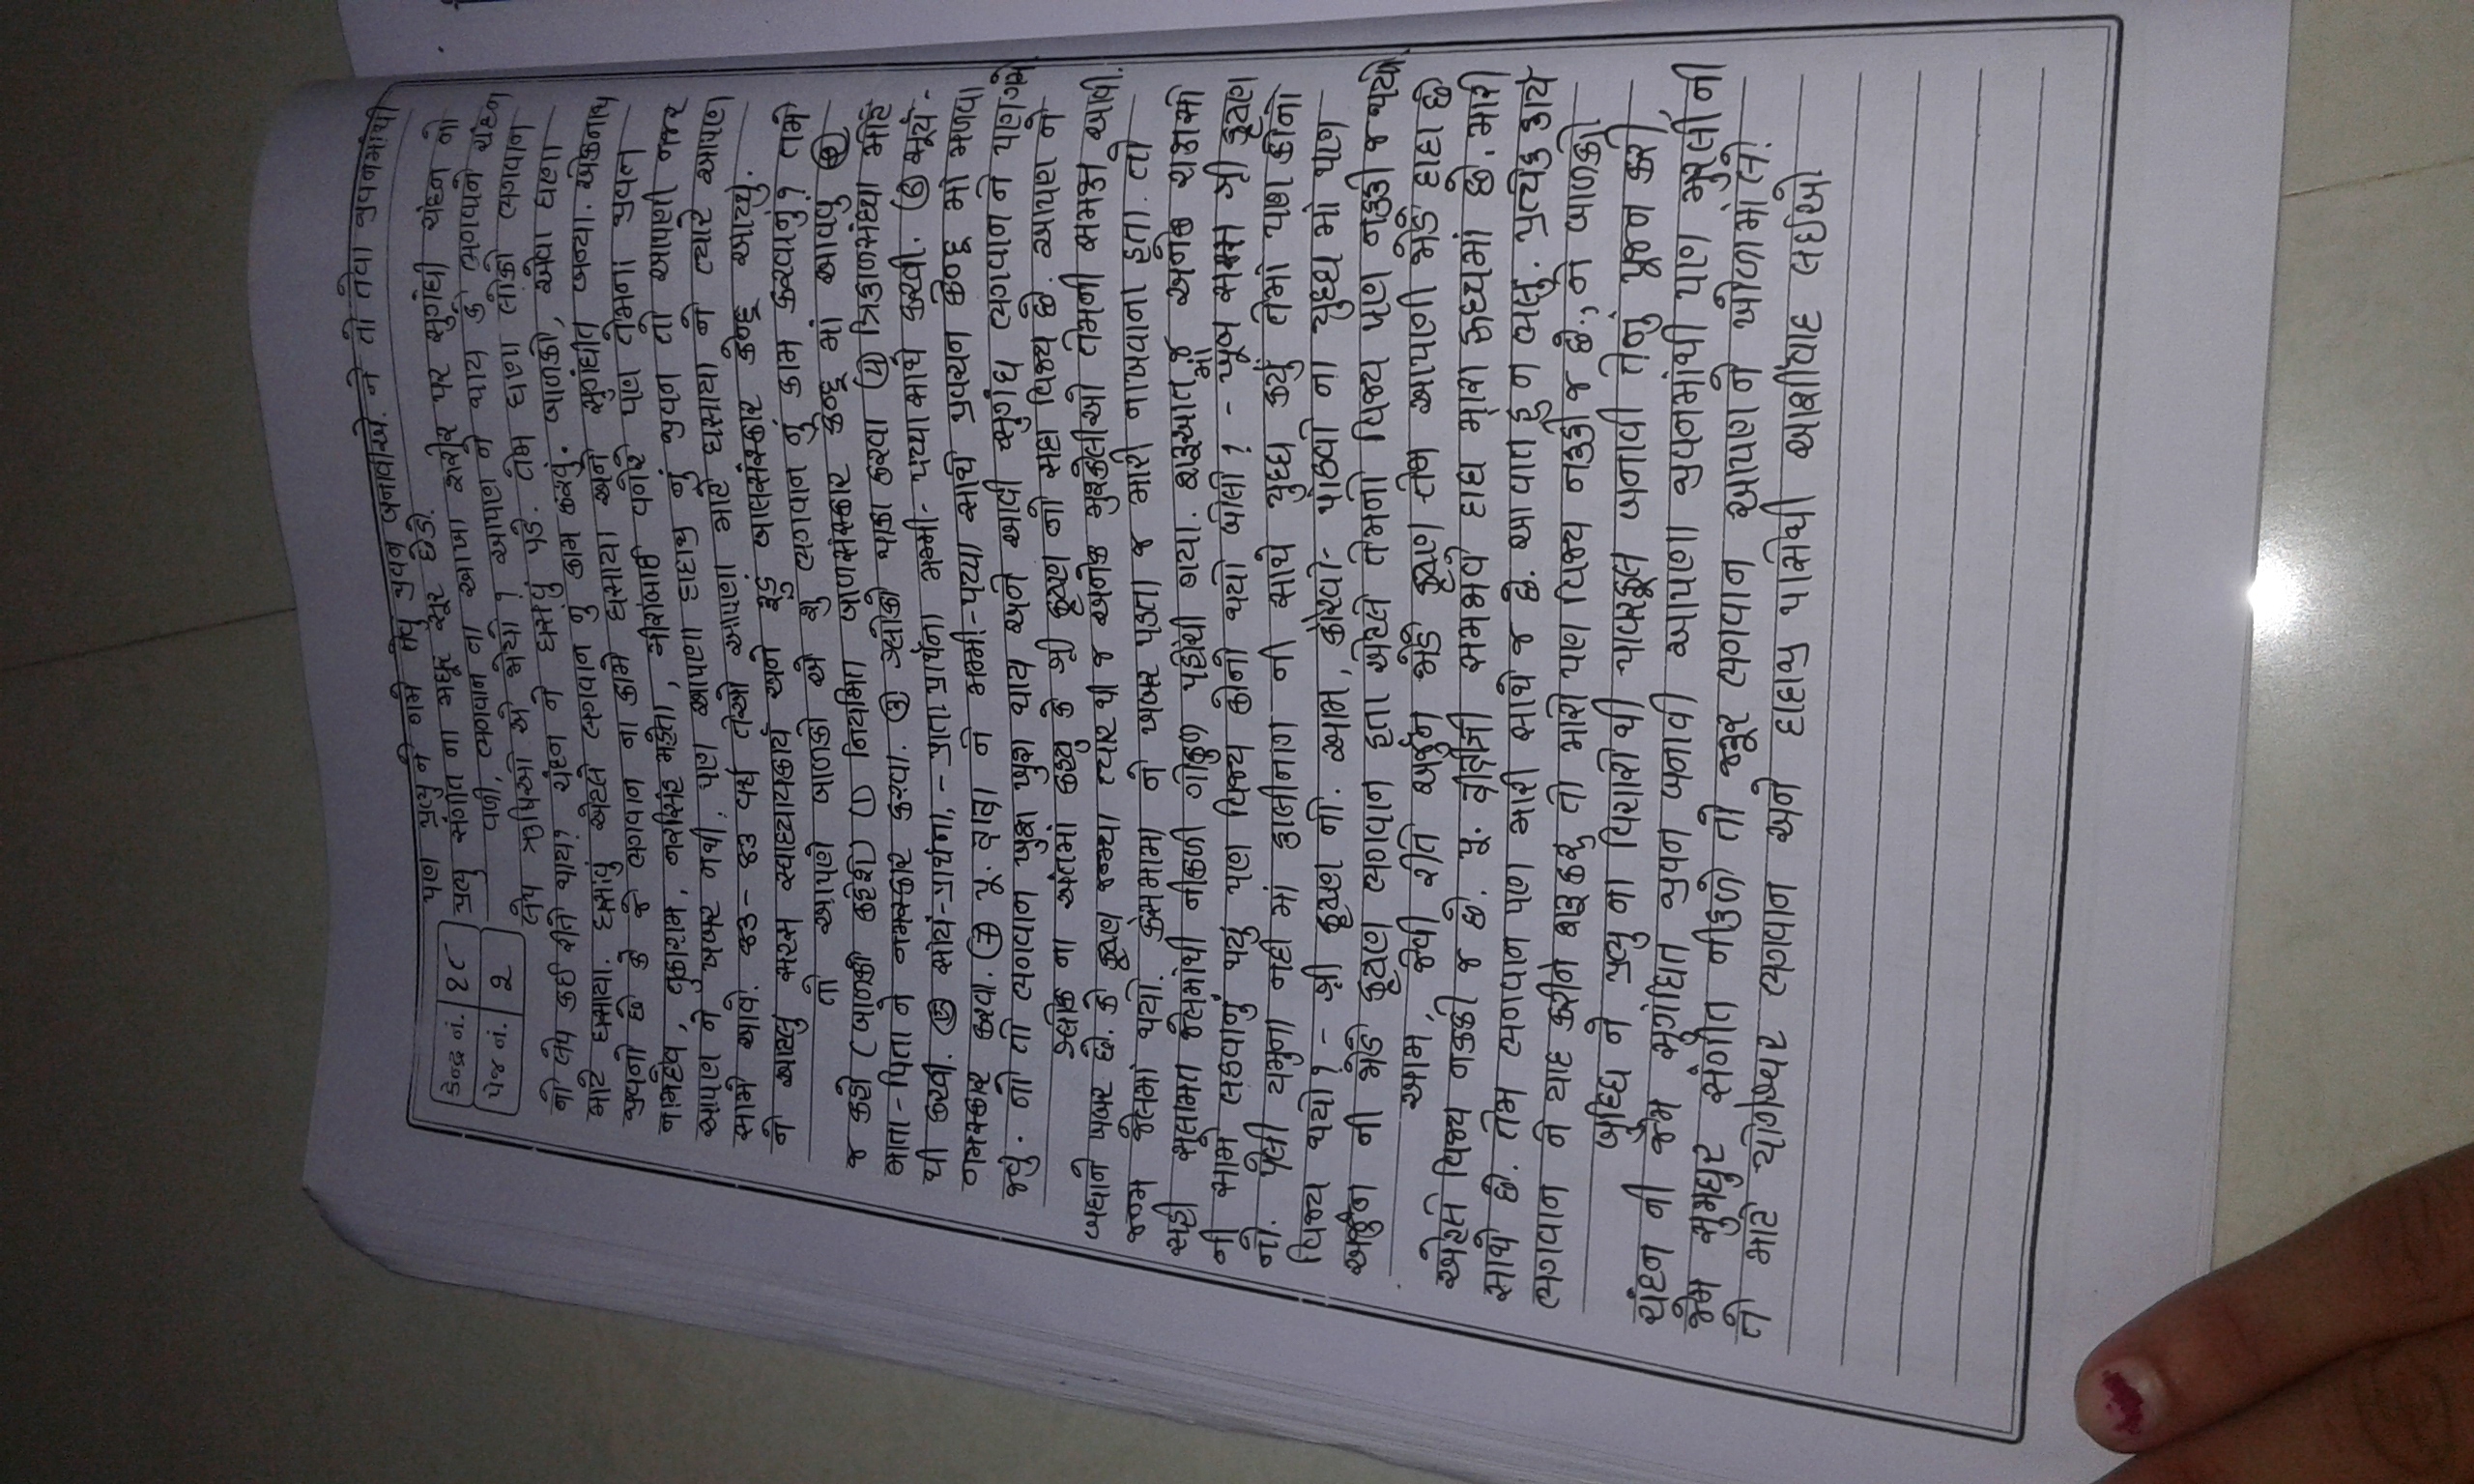 પણ પ્રભુ ને ગમે તેવુ જીવન બનાવીએ. ને તો તેવા જીવનમાંથી
કેન્દ્ર નં. ૧૮
પ્રભુ સંગીત ના મધૂર સૂર છેડો.
પેજ નં. ૨
વળી, ભગવાન ના આખા શરીર પર સુગંધી ચંદન નો
લેપ ઋષિઓ એ જોયો? આપણ ને થાય કે ભગવાને ચંદન
નો લેપ કઈ રીતે થાય? ચંદન ને ઘસાવું પડે. તેમ ઘણા લોકો ભગવાન
માટે ઘસાયા. ઘસાવું એટલે ભગવાન નું કામ કરવું. બાળકો, એવા ઘણા
જીવનો છે કે જે ભગવાન ના કામે ઘસાયા અને સુગંધીત બન્યા. એકનાથ
નામદેવ, તુકારામ, નરસિંહ મહેતા, મીરાંબાઈ વગેરે પણ તેમના જીવન
આપણ ને ખબર નથી. પણ આપણા દાદાજી નું જીવન તો આપણી નજર
સામે આવે. ૪૩ - ૪૩ વર્ષ તેઓ આપણા માટે ઘસાયા ને ત્યારે આપણ
ને આટલુ સરસ સ્વાધ્યાયકાર્ય અને રૂડું બાલસંસ્કાર કેન્દ્ર આપ્યુ.
તો આપણે બાળકો એ શું ભગવાન નું કામ કરવાનું? તમે
જ કહો (બાળકો કહેશે) (૧) નિયમિત બાળસંસ્કાર કેન્દ્ર માં આવવુ (૨)
માતા - પિતા ને નમસ્કાર કરવા. (૩) શ્લોકો પાકા કરવા (૪) ત્રિકાળસંધ્યા મોઢે
થી કરવી. (૫) સાંય-પ્રાર્થના, - પ્રાતઃ પ્રાર્થના મમ્મી- પપ્પા સાથે કરવી. (૬) સૂર્ય -
નમસ્કાર કરવા. (૭) પૂ. દાદા ને મમ્મી-પપ્પા સાથે પ્રવચન કેન્દ્ર માં મળવા
જવુ. નો તો ભગવાન ખુશ ખુશ થાય અને આવી સુગંધ ભગવાન ને પણ ગમે
શ્લોક ના અંતમાં કહ્યુ કે શ્રી કૃષ્ણ નો સદા વિજય છે. આપણ ને
બધાને ખબર છે. કે કૃષ્ણ જન્મ્યા ત્યાર થી જ અનેક મુશ્કેલીઓ તેમની સમક્ષ આવી.
જન્મ જેલમાં થયો. કંસમામા ને ખબર પડતા જ મારી નાખવાના હતા. તો
સહી સલામત જેલમાંથી નીકળી ગોકુળ પહોંચી ગયા. શરૂઆત માં જ અનેક રાક્ષસો
ની સામે લડવાનું થયુ પણ વિજય કોનો થયો બોલો? - ખૂબ સરસ શ્રી કૃષ્ણ
નો. પેલી યમુના નદી માં કાલીનાગ ની સાથે યુધ્ધ કર્યું તેમાં પણ કોનો
વિજય થયો? - શ્રી કૃષ્ણ નો. આમ, કૌરવો- પાંડવો ના યુધ્ધ માં પણ
અર્જુન ની જોડે કૃષ્ણ ભગવાન હતા એટલે તેમનો વિજય પણ નક્કી જ થયો.
આમ, જેવી રીતે અર્જુન જોડે કૃષ્ણ તેમ આપણી જોડે દાદા છે
એટલે વિજય નક્કી જ છે. પૂ. દીદીજી સમજાવે દાદા મારા હૃદયમાં છે. મારી
સાથે છે. તેમ ભગવાન પણ મારી સાથે જ છે. આ વાત હું ન ભુલુ. પ્રત્યેક કાર્ય
ભગવાન ને યાદ કરીને શરૂ કરુ તો મારો પણ વિજય નક્કી જ છે., ને બાળકો
બુધ્ધિ ને પ્રભુ ના વિચારો થી પાવરફૂલ બનાવી તેનું પૂજન કરી,
ચંદન ની જેમ સુગંધિત જીવન બનાવી આપણા જીવનમાંથી પણ મુરલી ની
જેમ સુમધુર સંગીત નીકળે તો જરૂર ભગવાન આપણ ને ખોળામાં લે.
તે માટે યોગેશ્વર ભગવાન અને દાદાજી પાસેથી આશીર્વાદ લઈએ